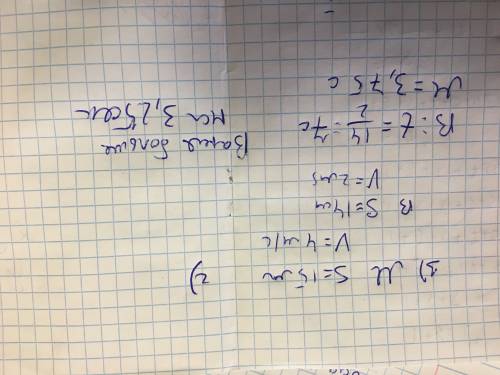 3) М S=15 м 2)
V=4 м/с
В S=14 м
V=2 м/с
В: t = 14/2 = 7с
М = 3,75 с
Ваня больше
на 3,25 сек